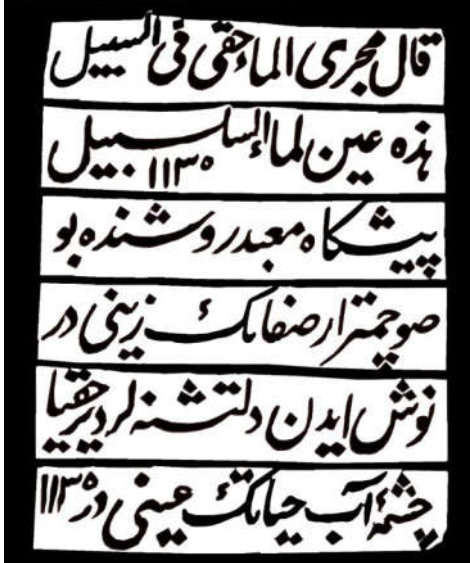 قال مجرى الماء حقى فى السبيل
هذه عين لماء السلسبيل ١١٣٥
پيشكاه معبد روشنده بو
صو چمنزار صفانك زينى در
نوش ايدن دلتشنه لر دير حقيا
چشمۀ آب حياتك عينى در ١١٣٥